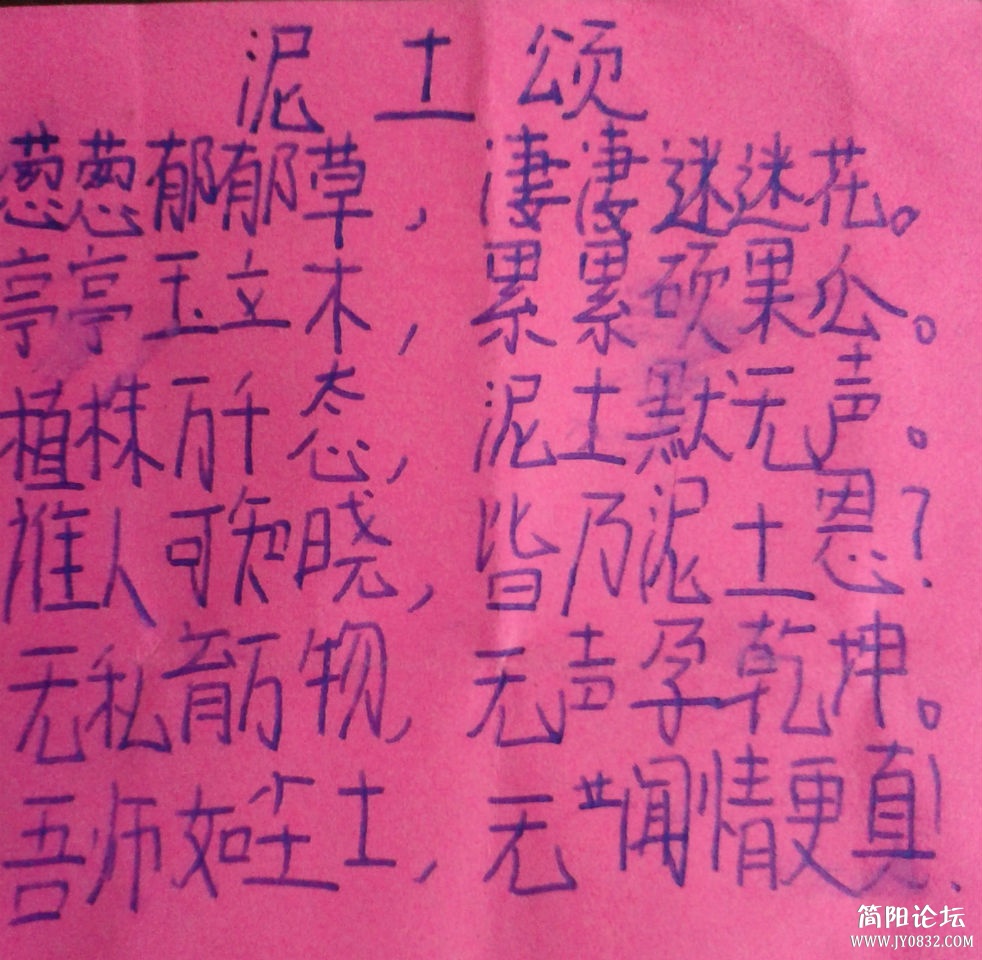 泥土颂
葱葱郁郁草，凄凄迷迷花。
亭亭玉立木，累累硕果公。
植株万千态，泥土默无声。
谁人可知晓，皆乃泥土恩？
无私育万物，无声孕乾坤。
吾师如尘土，无闻情更真！
简阳论坛
www.JY0832.com